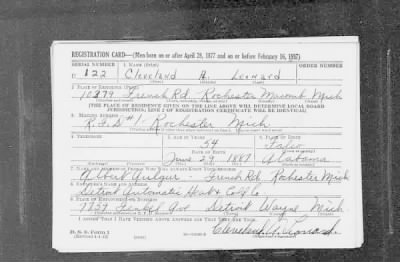 REGISTRATION CARD—(Men born on or after April 28, 1877 and on or before February 16, 1897)
SERIAL NUMBER 1. NAME (Print) ORDER NUMBER
U 122 Cleveland A. Leonard
2. PLACE OF RESIDENCE (Print)
French Rd. Rochester Macomb Mich
[THE PLACE OF RESIDENCE GIVEN ON THE LINE ABOVE WILL DETERMINE LOCAL BOARD
JURISDICTION; LINE 2 OF REGISTRATION CERTIFICATE WILL BE IDENTICAL]
3. MAILING ADDRESS
R.F.D #1- Rochester Mich
4. TELEPHONE 5. AGE IN YEARS 6. PLACE OF BIRTH
54 Falco
DATE OF BIRTH
June 29 1887 Alabama
7. NAME AND ADDRESS OF PERSON WHO WILL ALWAYS KNOW YOUR ADDRESS
Albert French Rd Rochester Mich
8. EMPLOYER'S NAME AND ADDRESS
Detroit Automatic Heat & Co
9. PLACE OF EMPLOYMENT OR BUSINESS
Fenkel Ave Detroit Wayne Mich
I AFFIRM THAT I HAVE VERIFIED ABOVE ANSWERS AND THAT THEY ARE TRUE.
D. S. S. Form 1
Cleveland A Leonard